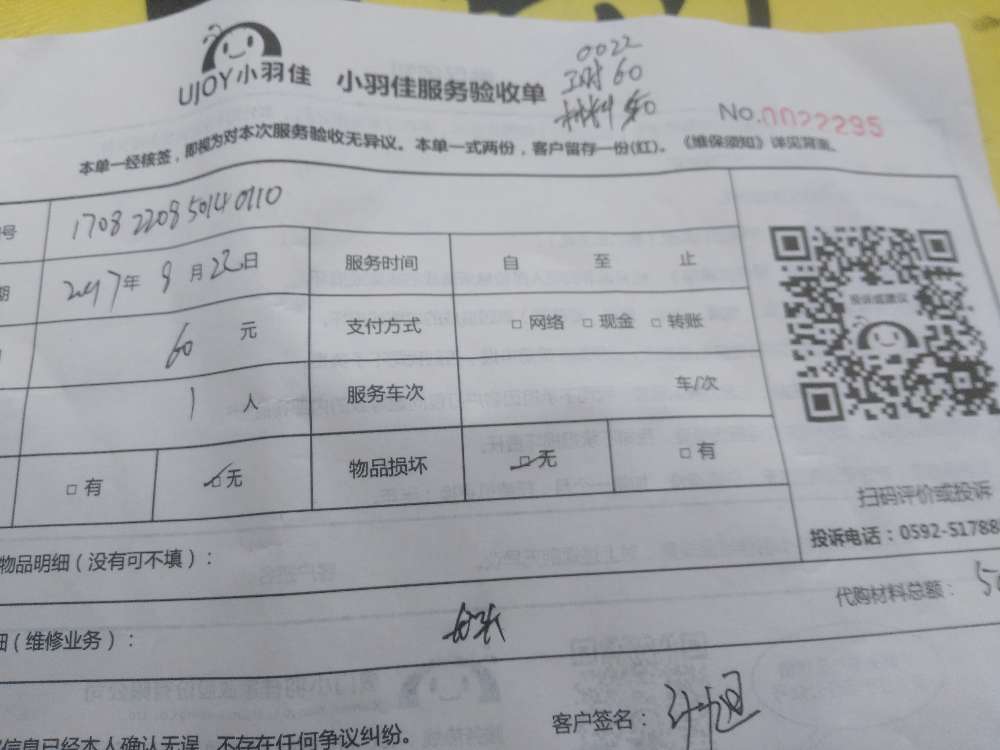 0022
UJOY小羽佳 小羽佳服务验收单 工时60
材料50
No.0022295
本单一经核签，即视为对本次服务验收无异议。本单一式两份，客户留存一份(红)。《维保须知》详见背面。
号 1708220850140110
期 2017年 8月22日 服务时间 自 至 止
60 元 支付方式 □网络 □现金 □转账
投诉或建议
1 人 服务车次 车/次
□有 □无 物品损坏 □无 □有
扫码评价或投诉
投诉电话：0592-51788
物品明细（没有可不填）：
代购材料总额：
细（维修业务）：
客户签名：
信息已经本人确认无误，不存在任何争议纠纷。